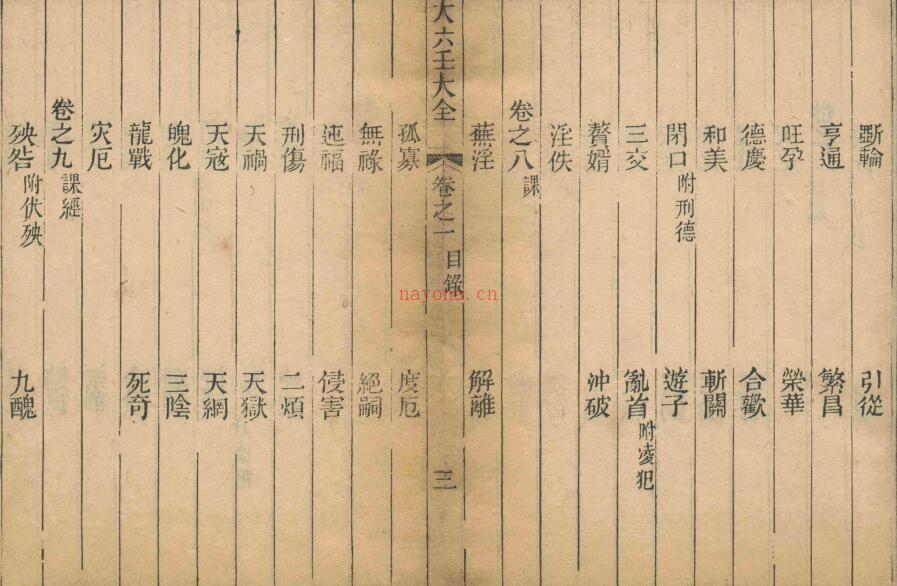 斲輪 引從
亨通 繁昌
旺孕 榮華
德慶 合歡
和美 斬關
閉口 附刑德 遊子
三交 亂首 附凌犯
贅婿 沖破
淫佚
卷之八 課
蕪淫 解離
大六壬大全 卷之一 目錄 三
孤寡 度厄
無祿 絕嗣
迍福 侵害
刑傷 二煩
天禍 天獄
天寇 天網
魄化 三陰
龍戰 死奇
灾厄
卷之九 課經
殃咎 附伏殃 九醜
nayona.cn